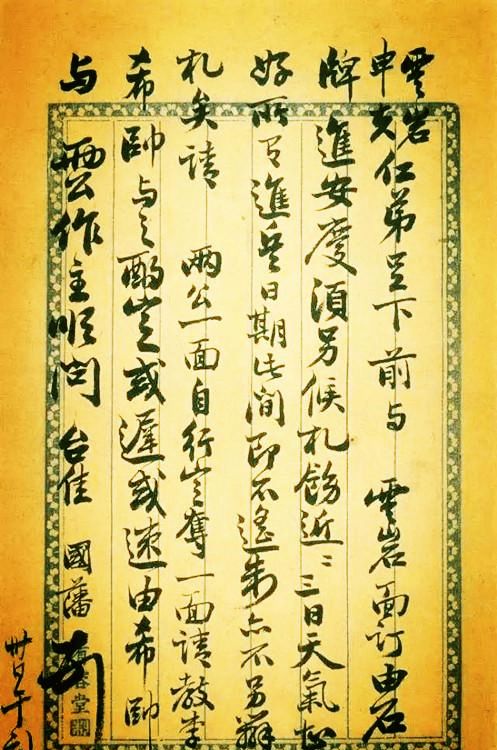 雲岩
申夫仁弟足下前与 雲岩面訂由石
牌進安慶須另候札飭近二三日天氣極
好所有進兵日期此間即不遙制亦不另辦
札矣請 兩公一面自行定奪一面請教李
希帥与之酌定或遲或速由希帥
与 兩公作主順問 台佳 國藩
卅日午刻